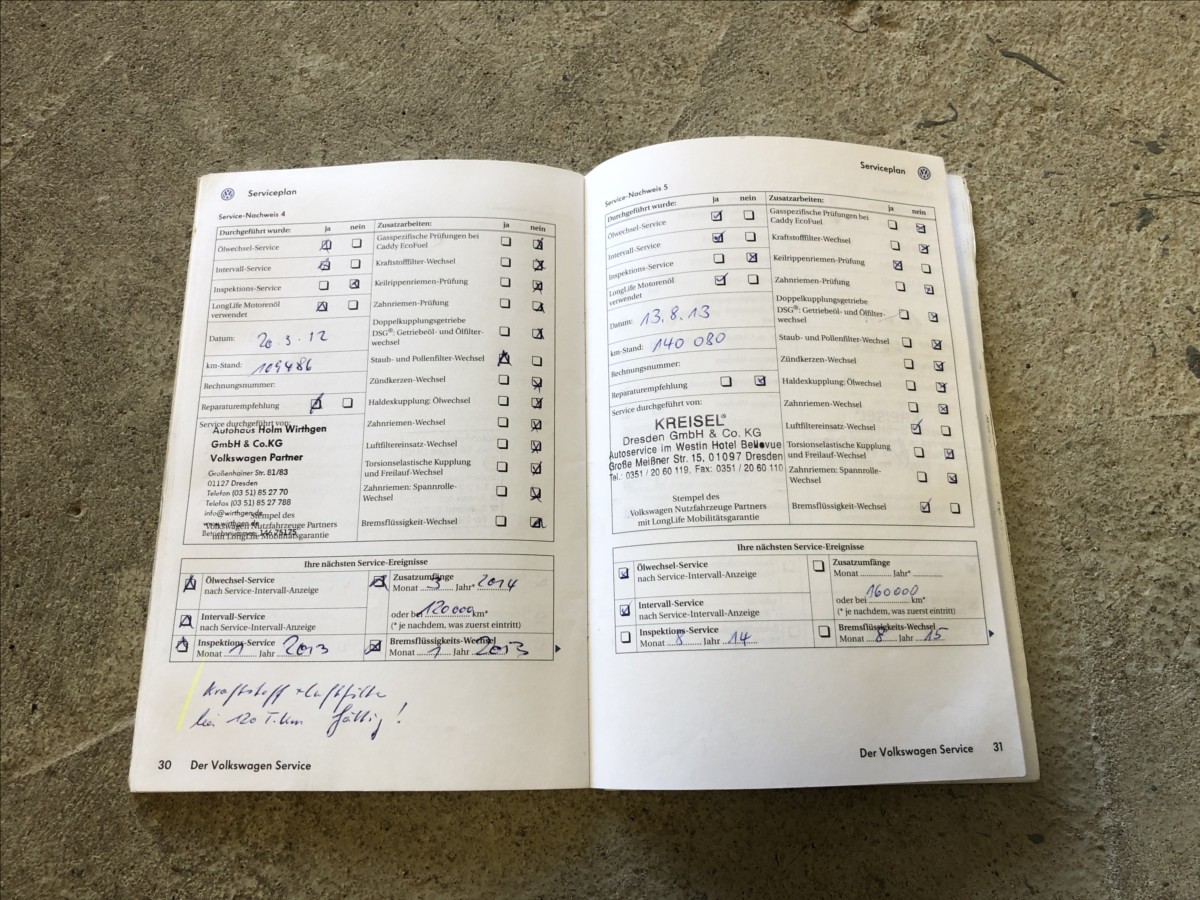 Serviceplan
Service-Nachweis 4
Durchgeführt wurde: ja nein
Ölwechsel-Service
Intervall-Service
Inspektions-Service
LongLife Motorenöl
verwendet
Datum: 20.3.12
km-Stand: 109486
Rechnungsnummer:
Reparaturempfehlung
Service durchgeführt von:
Autohaus Holm Wirthgen
GmbH & Co.KG
Volkswagen Partner
Großenhainer Str. 81/83
01127 Dresden
Telefon (03 51) 85 27 70
Telefax (03 51) 85 27 788
info@wirthgen.de
www.wirthgen.de
Stempel des
Volkswagen Nutzfahrzeuge Partners
Betriebsnummer: 146 75175
mit LongLife Mobilitätsgarantie
Zusatzarbeiten: ja nein
Gasspezifische Prüfungen bei
Caddy EcoFuel
Kraftstofffilter-Wechsel
Keilrippenriemen-Prüfung
Zahnriemen-Prüfung
Doppelkupplungsgetriebe
DSG®: Getriebeöl- und Ölfilter-
wechsel
Staub- und Pollenfilter-Wechsel
Zündkerzen-Wechsel
Haldexkupplung: Ölwechsel
Zahnriemen-Wechsel
Luftfiltereinsatz-Wechsel
Torsionselastische Kupplung
und Freilauf-Wechsel
Zahnriemen: Spannrolle-
Wechsel
Bremsflüssigkeit-Wechsel
Ihre nächsten Service-Ereignisse
Ölwechsel-Service
nach Service-Intervall-Anzeige
Intervall-Service
nach Service-Intervall-Anzeige
Inspektions-Service
Monat 1 Jahr 2013
Zusatzumfänge
Monat 3 Jahr* 2014
oder bei 120000 km*
(* je nachdem, was zuerst eintritt)
Bremsflüssigkeits-Wechsel
Monat 1 Jahr 2013
Kraftstoff + Luftfilter
bei 120 T.km fällig!
30 Der Volkswagen Service
Serviceplan
Service-Nachweis 5
Durchgeführt wurde: ja nein
Ölwechsel-Service
Intervall-Service
Inspektions-Service
LongLife Motorenöl
verwendet
Datum: 13.8.13
km-Stand: 140 080
Rechnungsnummer:
Reparaturempfehlung
Service durchgeführt von:
KREISEL®
Dresden GmbH & Co. KG
Autoservice im Westin Hotel Bellevue
Große Meißner Str. 15, 01097 Dresden
Tel.: 0351 / 20 60 119, Fax: 0351 / 20 60 110
Stempel des
Volkswagen Nutzfahrzeuge Partners
mit LongLife Mobilitätsgarantie
Zusatzarbeiten: ja nein
Gasspezifische Prüfungen bei
Caddy EcoFuel
Kraftstofffilter-Wechsel
Keilrippenriemen-Prüfung
Zahnriemen-Prüfung
Doppelkupplungsgetriebe
DSG®: Getriebeöl- und Ölfilter-
wechsel
Staub- und Pollenfilter-Wechsel
Zündkerzen-Wechsel
Haldexkupplung: Ölwechsel
Zahnriemen-Wechsel
Luftfiltereinsatz-Wechsel
Torsionselastische Kupplung
und Freilauf-Wechsel
Zahnriemen: Spannrolle-
Wechsel
Bremsflüssigkeit-Wechsel
Ihre nächsten Service-Ereignisse
Ölwechsel-Service
nach Service-Intervall-Anzeige
Intervall-Service
nach Service-Intervall-Anzeige
Inspektions-Service
Monat 8 Jahr 14
Zusatzumfänge
Monat Jahr*
160000
oder bei km*
(* je nachdem, was zuerst eintritt)
Bremsflüssigkeits-Wechsel
Monat 8 Jahr 15
Der Volkswagen Service 31